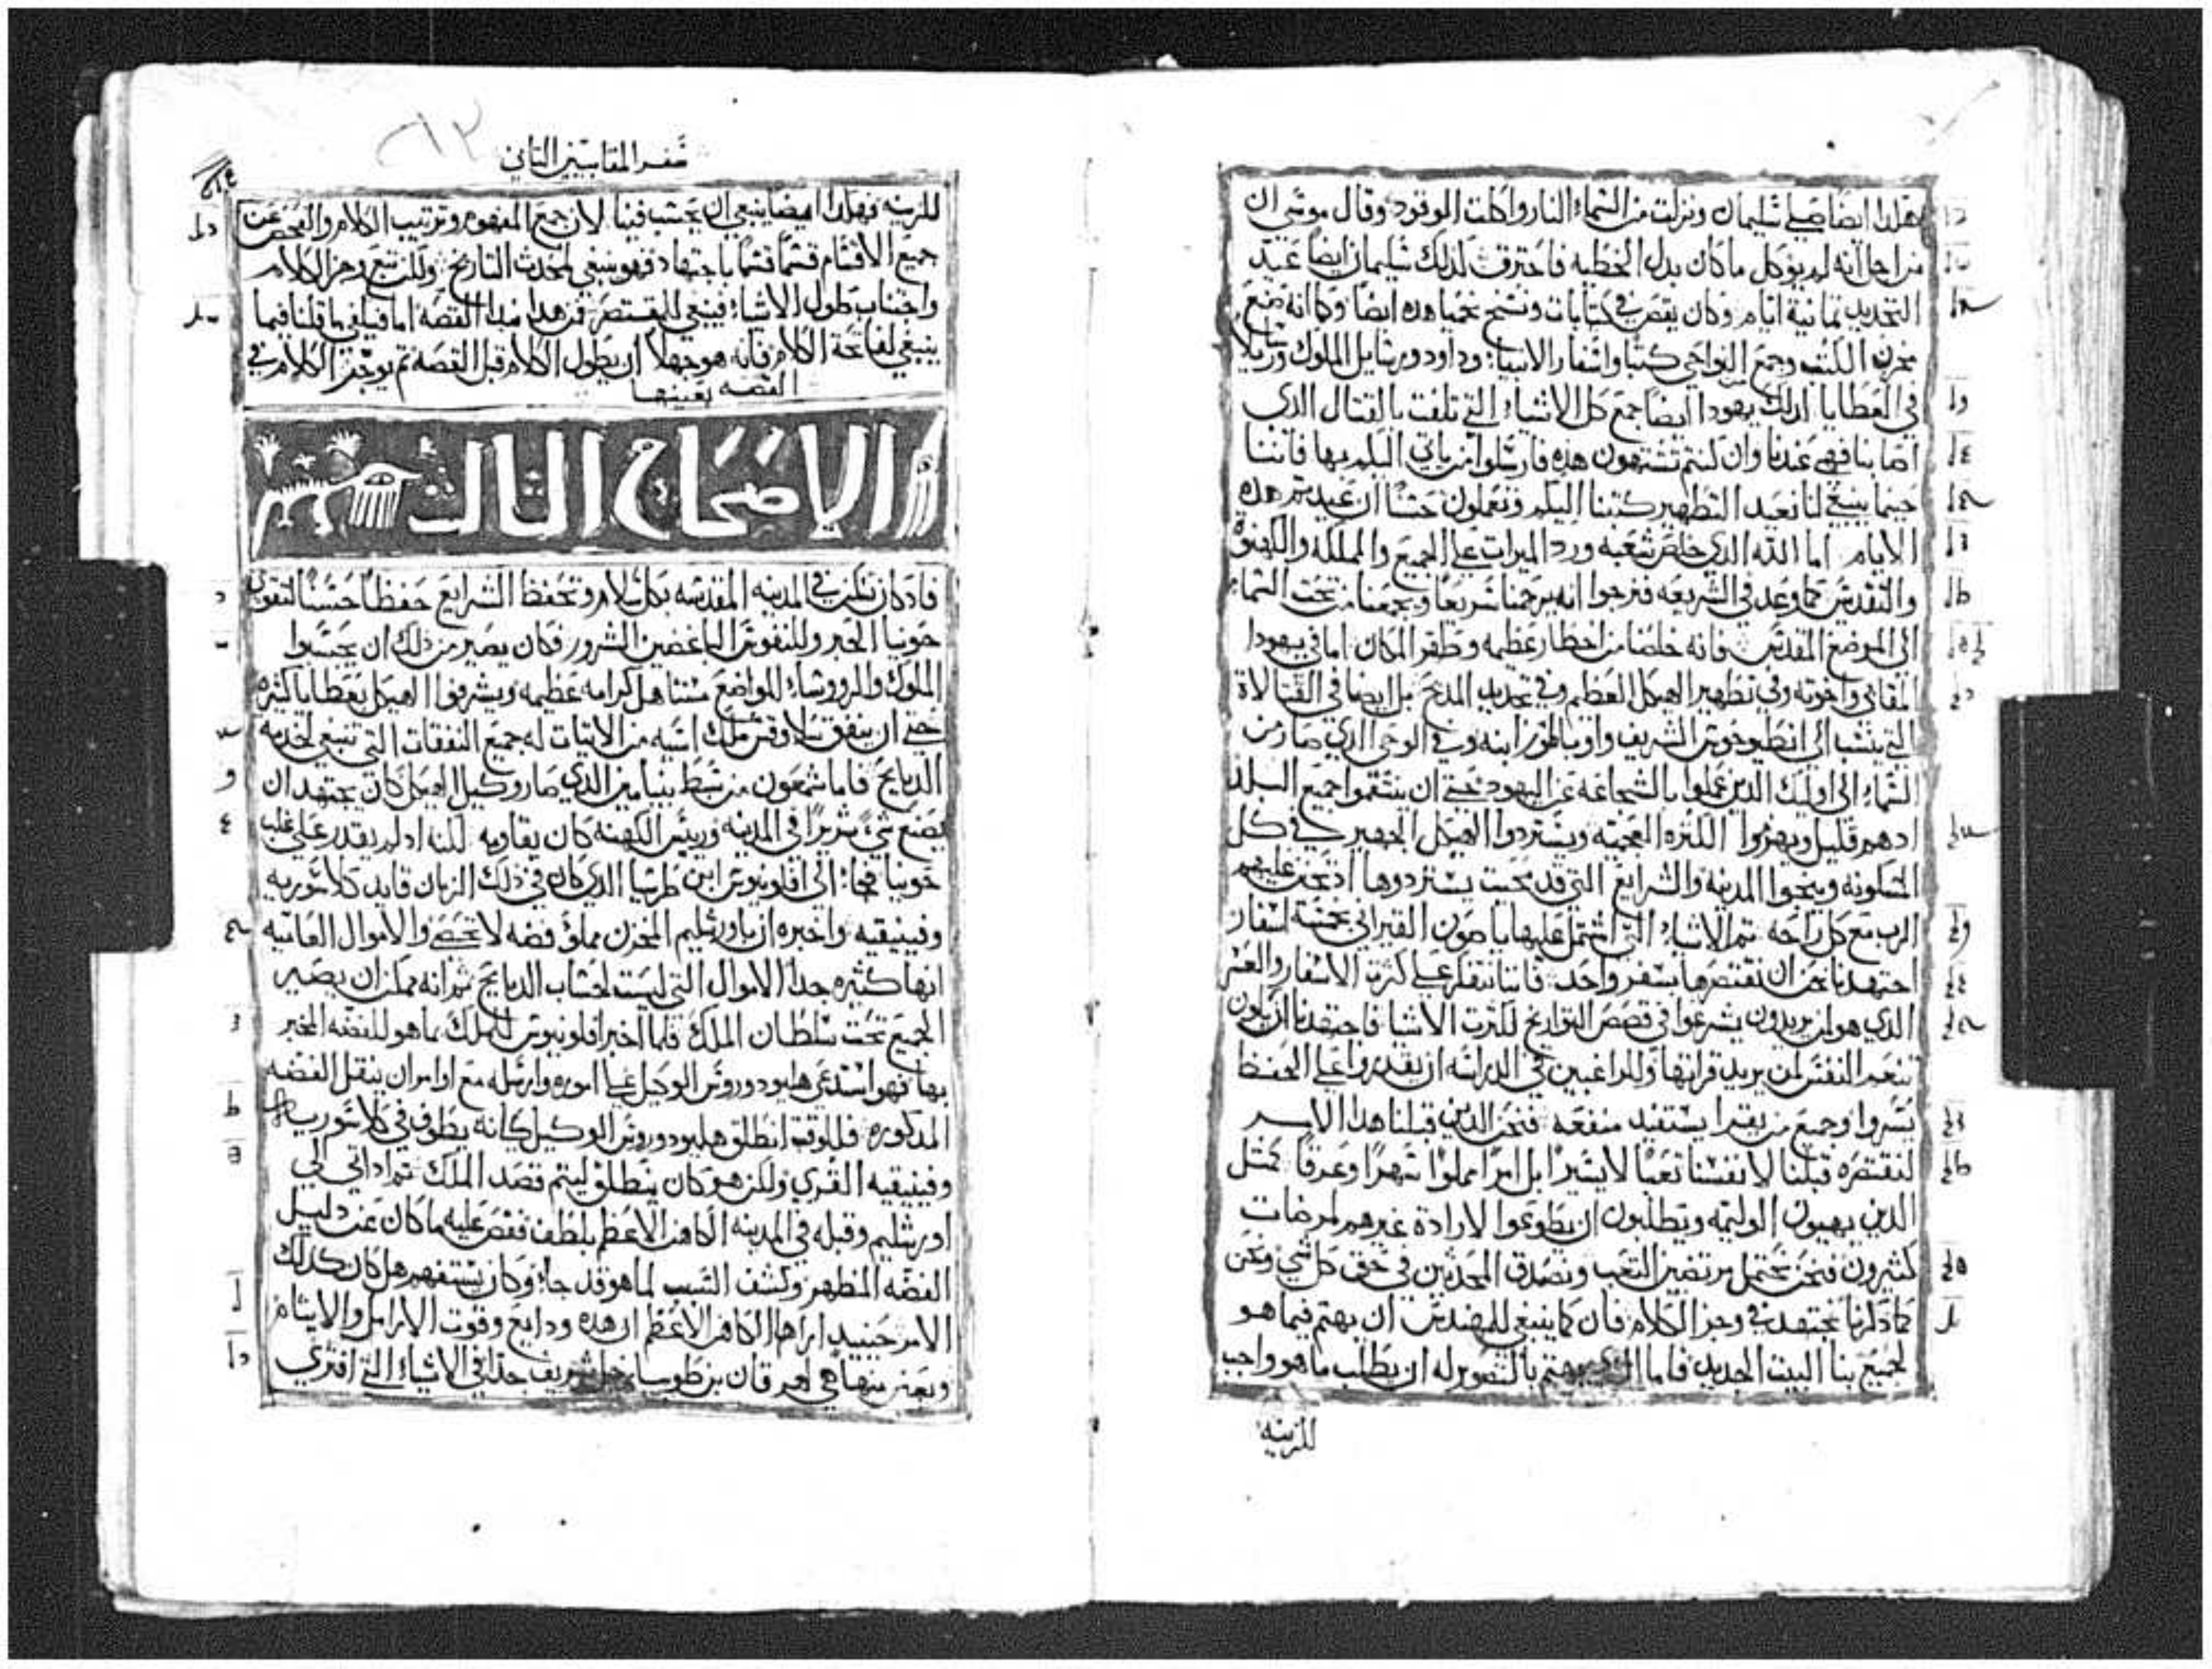 هكذا ايضا صلي سليمان ونزلت من السماء النار واكلت الموقود وقال موسي ان
من اجل انه لم يوكل ما كان بدل الخطيه فاحترق لذلك سليمان ايضا عيد
التجديد تمانية ايام وكان يقص في كتابات ونسخ نحميا هذه ايضا وكانه صنع
مخزن الكتب وجمع النواحي كتبا واسفار الانبياء وداود ورسايل الملوك
في العطايا كذلك يهودا ايضا جمع كل الاشياء التي تلفت بالقتال الذي
اصابنا فهي عندنا وان كنتم تشتهون هذه فارسلوا من ياتي اليكم بها فاننا
حينما ينبغي لنا نعيد التطهير كتبنا اليكم وتعملون حسنا ان عيدتم هذه
الايام اما الله الذي خلص شعبه ورد الميرات علي الجميع والمملكه والكهنوة
والتقديس كما وعد في الشريعه فنرجوا انه يرحمنا سريعا ويجمعنا من تحت السماء
الي الموضع المقدس فانه خلصنا من اخطار عظيمه وطهر المكان اما في يهودا
المقابي واخوته وفي تطهير الهيكل العظيم وفي تجديد المدبح بل ايضا في القتالاة
التي تنسب الي انطيوخوس الشريف واوباطور ابنه وفي الوحي الذي صار من
السماء الي اوليك الذين عملوا بالشجاعه عن اليهود حتي ان ينتقموا جميع البلد
ادهم قليل ويهزموا الكثره العجميه ويستردوا الهيكل الشهير في كل
المسكونه وينجوا المدينه والشرايع التي قد محيت يستردوها اد تحنن عليهم
الرب مع كل راحه تم الاشياء التي اشتمل عليها ياصون القيراني بخمسة اسفار
اجتهدنا نحن ان نقتصرها بسفر واحد فاننا نتفكر علي كثرة الاسفار والعسر
الذي هو لمن يريدون يشرعوا في قصص التواريخ لكثرت الاشيا فاجتهدنا ان يكون
تنعم النفس لمن يريد قراتها وللراغبين في الدراسه ان يقدروا علي الحفظ
بسروا وجميع من يقرا يستفيد منفعه فنحن الدين قبلنا هذا الامر
لنقتصره قبلنا لانفسنا تعبا لا يسيرا بل امرا مملوا سهرا وعرقا كمثل
الذين يهيون الوليمه ويطلبون ان يطوعوا لارادة غيرهم لمرضات
كثيرون فنحن نحتمل مرتضين التعب ونصدق المحدثين في حق كل شي ونحن
كما ذكرنا نجتهد في وجز الكلام فان كما ينبغي للمهندس ان يهتم فيما هو
لجميع بنا البيت الجديد فاما الذي يهتم بالتصوير له ان يطلب ما هو واجب
للزينه
سفر المقابيين الثاني
للزينه فهكذا ايضا ينبغي ان يحسب فينا لان جميع المفهوم وترتيب الكلام والفحص عن
جميع الاقسام قسما قسما باجتهاد فهو ينبغي لمحدث التاريخ ولكن تتبع وجز الكلام
واجتناب طول الاشياء فينبغي للمقتصر فمن هذا مبدا القصه اما فيكفي ما قلنا فيما
ينبغي لفاتحة الكلام فانه هو جهلا ان يطول الكلام قبل القصه تم يوجز الكلام في
القصه بعينها
الاصحاح التالت
فاد كان تكن في المدينه المقدسه بكل سلام وتحفظ الشرايع حفظا حسنا لتقوي
حونيا الحبر وللنفوس الباغضين الشرور فكان يصير من ذلك ان يحسبوا
الملوك والروساء المواضع مستاهل كرامه عظيمه ويشرفوا الهيكل بعطايا كثيره
حتي ان ينفق سلاوقس ملك اسيه من الاتيات له جميع النفقات التي تنبغي لخدمه
الدبايح فاما شمعون من سبط بنيامين الذي صار وكيل الهيكل كان يجتهد ان
يصنع شي شريرا في المدينه ورييس الكهنه كان يقاومه لكنه اد لم يقدر علي غلب
حونيا فجاء الي افلونيوس ابن طرسيا الذي كان في ذلك الزمان قايد كلاسوريه
وفينيقيه واخبره ان باورشليم المخزن مملو فضه لا تحصي والاموال العاميه
انها كثيره جدا الاموال التي ليست لحساب الدبايح ثم انه ممكن ان يصير
الجميع تحت سلطان الملك فلما اخبر افلونيوس الملك بما هو للفضه المخبر
بها فهو استدعي هليودوروس الوكيل علي اموره وارسله مع اوامر ان ينقل الفضه
المذكوره فللوقت انطلق هليودوروس الوكيل كانه يطوف في كلاسوريه
وفينيقيه القري ولكن هو كان ينطلق ليتم قصد الملك تم اد اتي الي
اورشليم وقبله في المدينه الكاهن الاعظم بلطف فقص عليه ما كان عن دليل
الفضه المظهر وكشف السبب لما هو قد جاء وكان يستفهم هل كان كذلك
الامر حينيد اراها الكاهن الاعظم ان هذه ودايع وقوت الارامل والايتام
وبعض منها هي لهرقان بن طوبيا رجل شريف جدا في الاشياء التي افتري